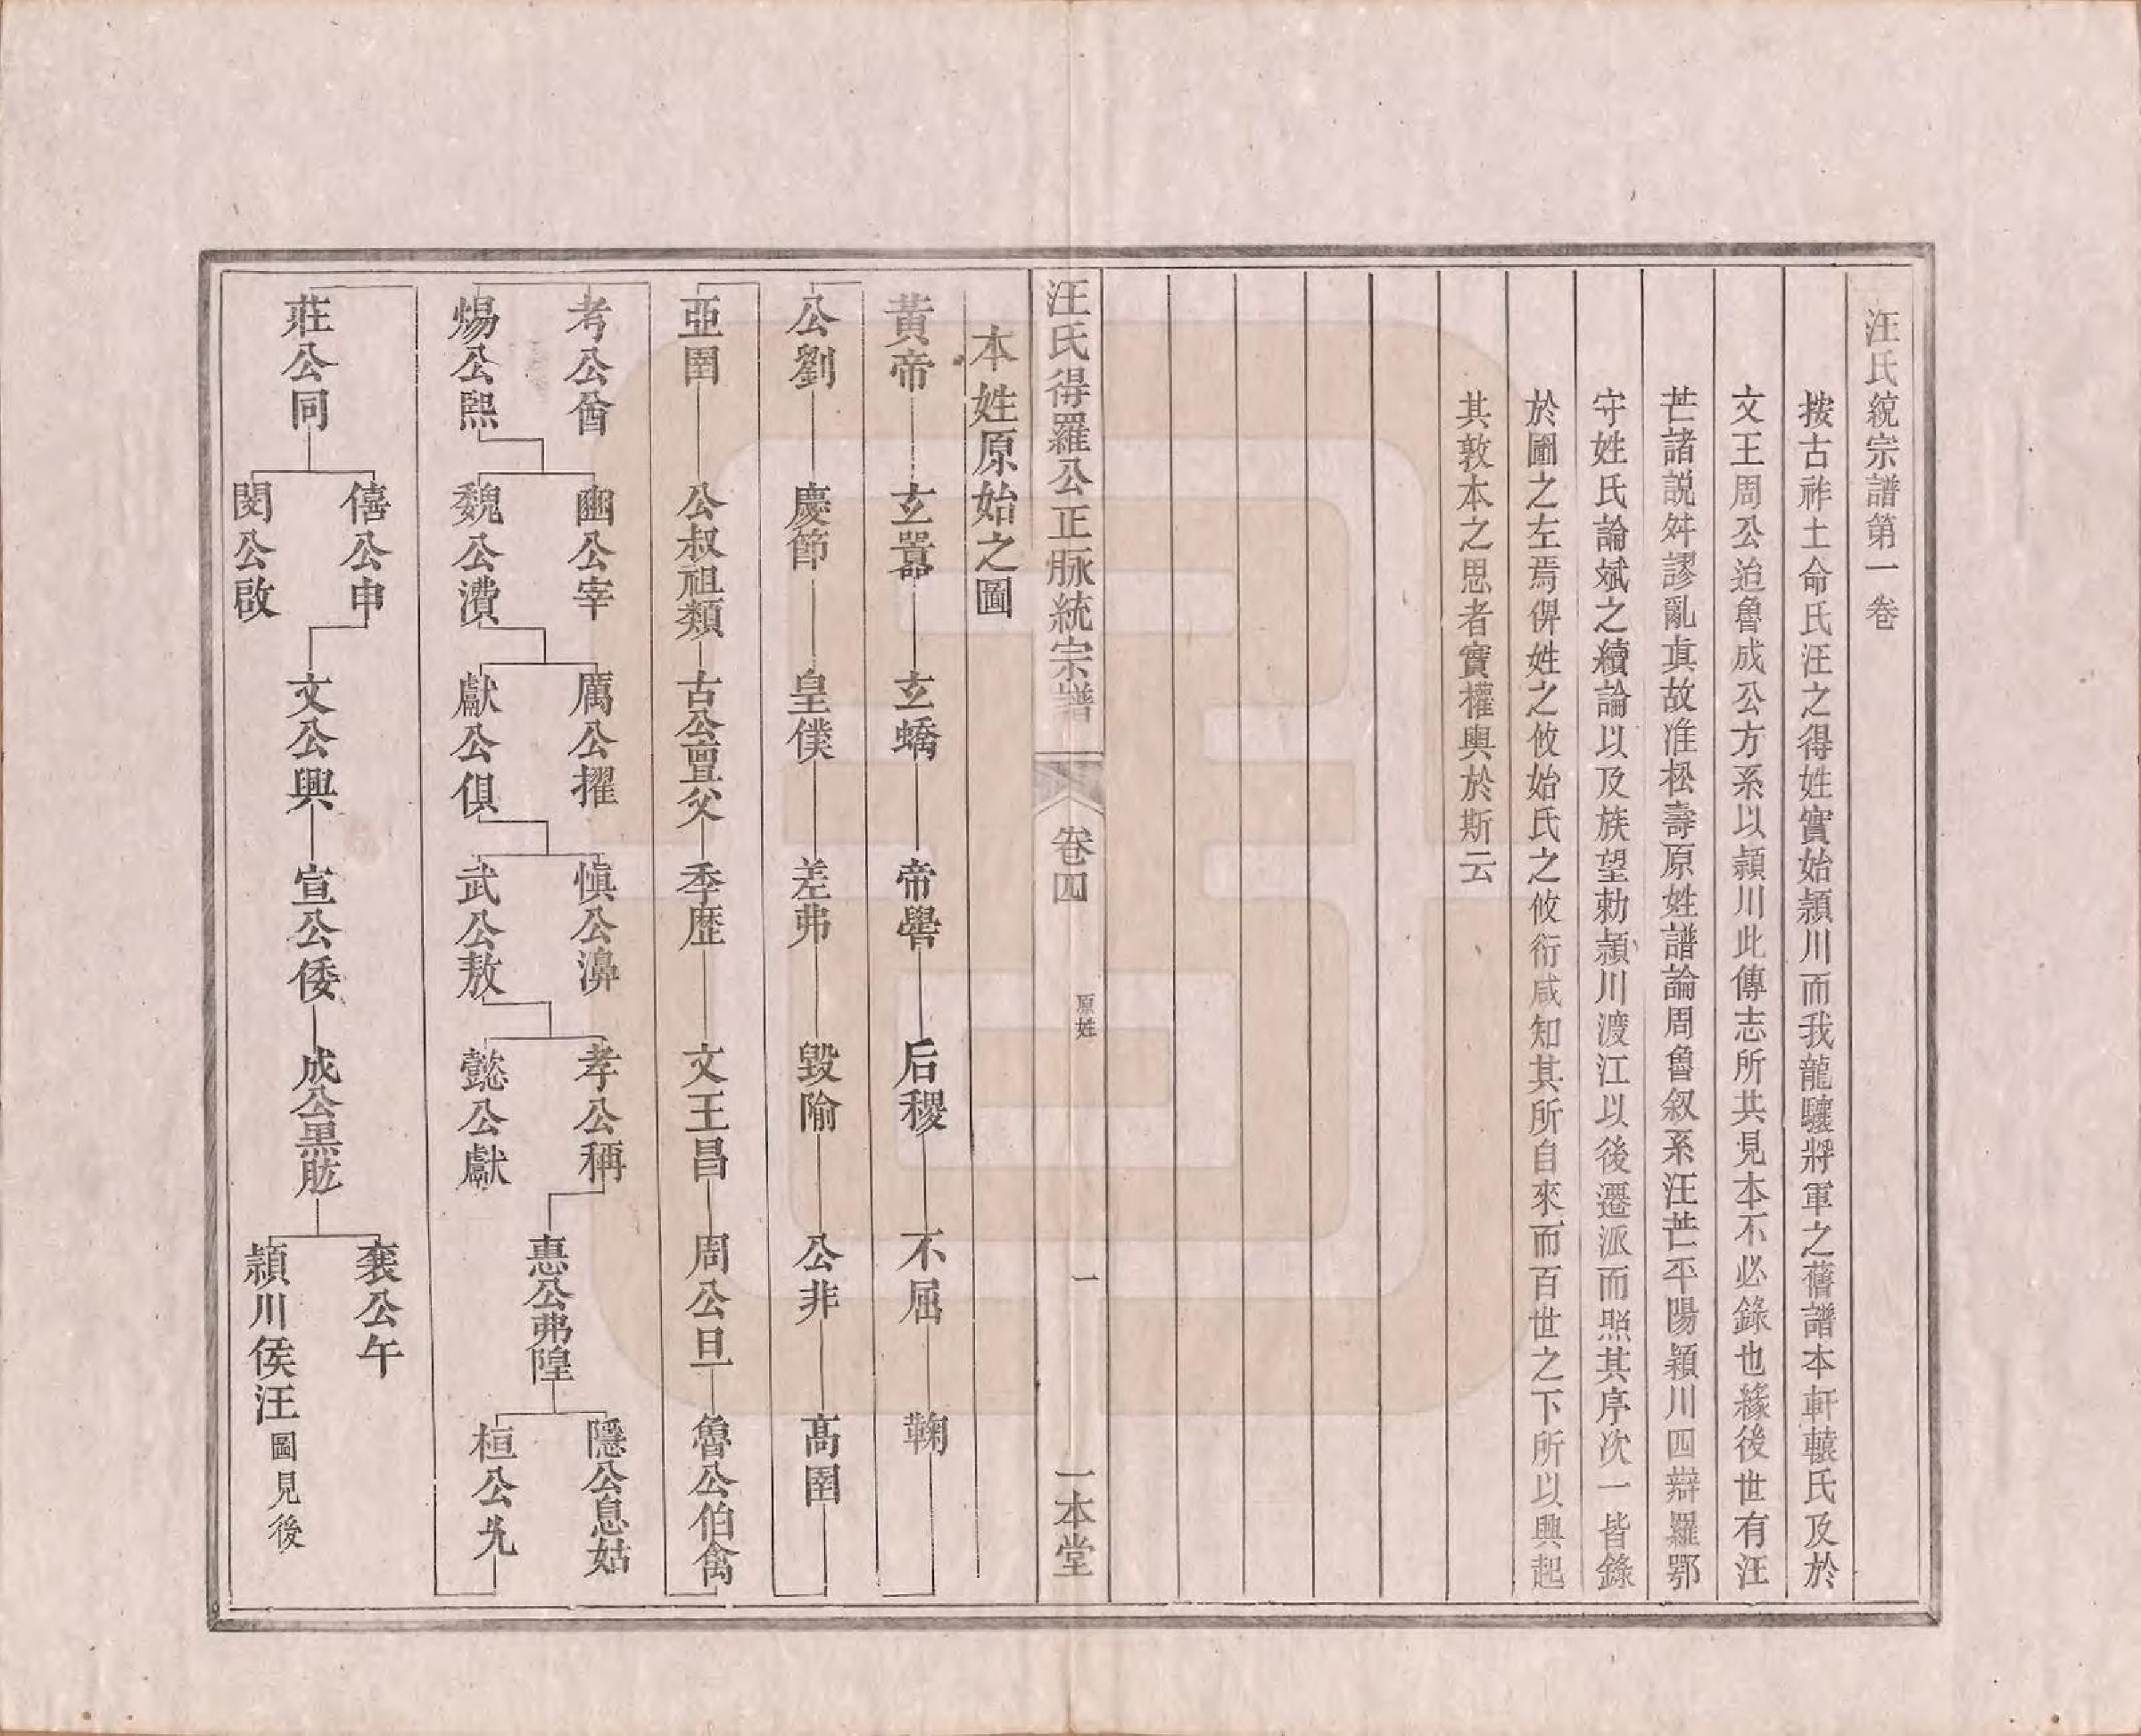 汪氏統宗譜第一卷
按古祚土命氏汪之得姓實始潁川而我龍驤將軍之舊譜本軒轅氏及於
文王周公迨魯成公方系以潁川此傳志所共見本不必錄也緣後世有汪
芒諸説舛謬亂真故准松壽原姓譜論周魯叙系汪芒平陽潁川四辯羅鄂
守姓氏論斌之續論以及族望勅潁川渡江以後遷派而照其序次一皆錄
於圖之左焉俾姓之攸始氏之攸衍咸知其所自來而百世之下所以興起
其敦本之思者實權輿於斯云
汪氏得羅公正脉統宗譜 卷四 原姓 一 一本堂
本姓原始之圖
黃帝 玄囂 玄蟜 帝嚳 后稷 不屈 鞠
公劉 慶節 皇僕 差弗 毀隃 公非 高圉
亞圉 公叔祖類 古公亶父 季歷 文王昌 周公旦 魯公伯禽
考公酋 幽公宰 厲公擢 慎公濞 孝公稱 惠公弗隍 隱公息姑
煬公熙 魏公㵒 獻公俱 武公敖 懿公戲 桓公允
莊公同 僖公申 閔公啟 文公興 宣公倭 成公黑肱 襄公午
潁川侯汪圖見後